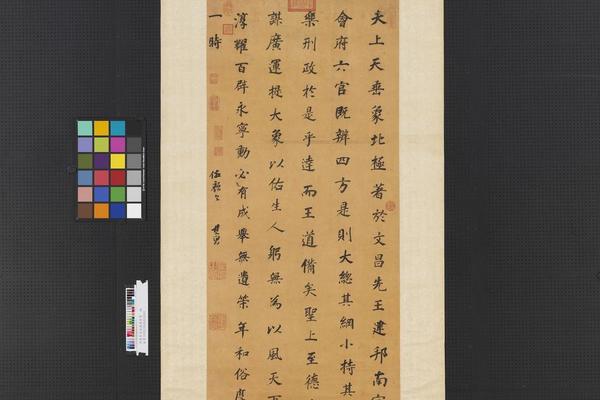 夫上天垂象北極著於文昌先王建邦南
會府六官既辨四方是則大總其綱小持其
樂刑政於是乎達而王道備矣聖上至德
謀廣運提大象以佑生人躬無為以風天下
淳耀百辟永寧動必有成舉無遺策年和俗
一時